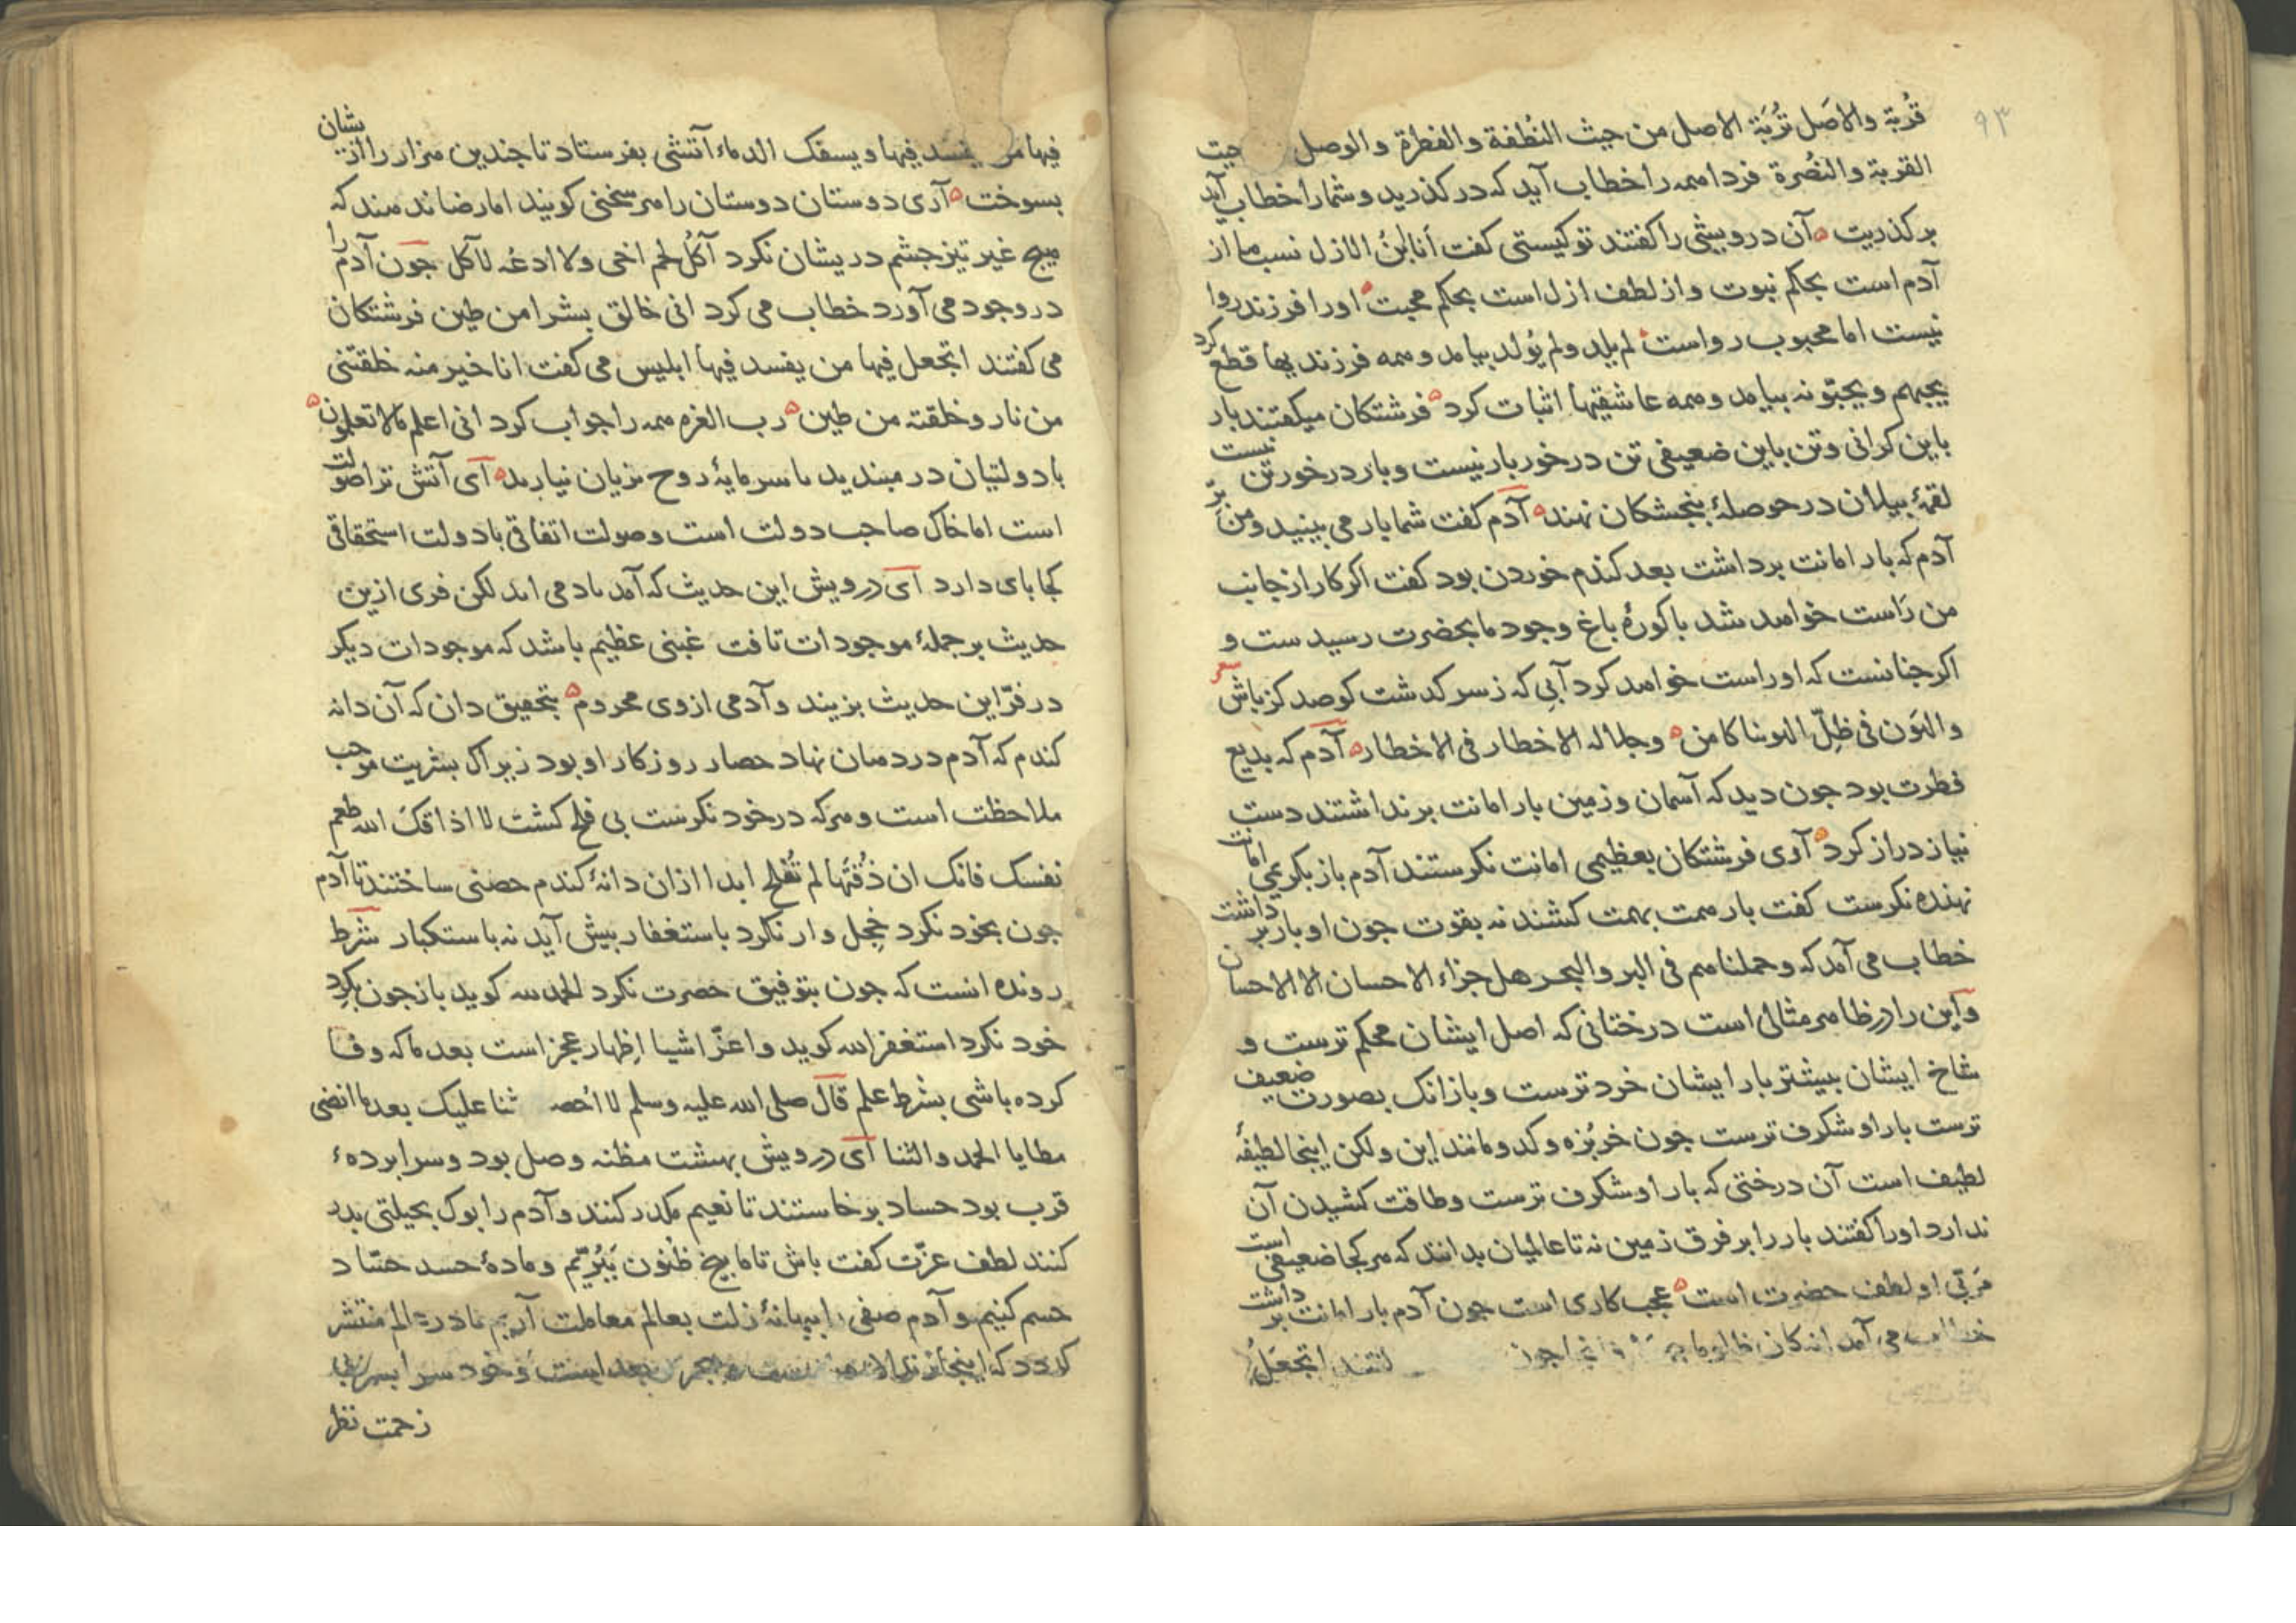 ۹۳
قُربة والاصَل تُربَة الاصل من حیث النُطفة والفطرة والوصل حیث
القربة والنُصرة فردا همه را خطاب آید که در کذرید و شما را خطاب آید
بر کذریت آن درویشی را کفتند تو کیستی کفت اَنا ابنُ الازل نسب ما از
آدم است بحکم نبوت و از لطف ازل است بحکم محبت او را فرزند روا
نیست اما محبوب رواست لم یلد ولم یُولد بیامد و همه فرزندیها قطع کرد
یحبهم و یحبّونه بیامد و همه عاشقیها اثبات کرد فرشتکان میکفتند بار
باین کرانی و تن باین ضعیفی تن در خور بار نیست و بار در خور تن نیست
لقمۀ بیلان در حوصلۀ بنجشکان نهند آدم کفت شما بار می بینید و من
آدم که بار امانت برداشت بعد کندم خوردن بود کفت اکر کار از جانب
من رَاست خواهد شد باکورۀ باغ وجود ما بحضرت رسیدست و
اکر جنانست که او راست خواهد کرد آبی که ز سر کدشت کو صد کز باش
والهَون فی ظِلّ الهوینا کامن وجلاله الاخطار فی الاخطار آدم که بدیع
فطرت بود جون دید که آسمان و زمین بار امانت برنداشتند دست
نیاز دراز کرد آوی فرشتکان بعظیمی امانت نکرستند آدم باز بکریمی امانت
نهنده نکرست کفت بار همت بهمت کشند نه بقوت جون او بار برداشت
خطاب می آمد که وحملناهم فی البر والبحر هل جزاء الاحسان الا الاحسان
و این را در ظاهر مثالی است درختانی که اصل ایشان محکم ترست و
شاخ ایشان بیشتر بار ایشان خرد ترست و باز انک بصورت ضعیف
ترست بار او شکرف ترست جون خربُزه و کدو و مانند این و لکن اینجا لطیفۀ
لطیف است آن درختی که بار او شکرف ترست و طاقت کشیدن آن
ندارد او را کفتند بار را بر فرق زمین نه تا عالمیان بدانند که هر کجا ضعیفی است
مُربّی او لطف حضرت است عجب کاری است جون آدم بار امانت برداشت
خطاب می آمد انه کان ظلوما جون اتجعَلُ
فیها من یفسد فیها ویسفک الدماء آتشی بفرستاد تا جندین هزار را از یشان
بسوخت آری دوستان دوستان را هر سخنی کویند اما رضا ندهند که
هیج غیر تیز جشم در یشان نکرد آکُل لحم اخی ولا ادعُه لآکل جون آدم را
در وجود می آورد خطاب می کرد انی خالق بشرا من طین فرشتکان
می کفتند اتجعل فیها من یفسد فیها ابلیس می کفت انا خیر منه خلقتنی
من نار وخلقته من طین رب العزه همه را جواب کرد انی اعلم مالا تعلمون
با دولتیان در مبندید تا سرمایۀ روح بزیان نیارید ای آتش ترا صولت
است اما خاک صاحب دولت است و صولت اتفاقی با دولت استحقاقی
کجا بای دارد ای درویش این حدیث که آمد با دمی امد لکن فری ازین
حدیث بر جملۀ موجودات تافت غبنی عظیم باشد که موجودات دیکر
در فرّ این حدیث بزیند و آدمی از وی محروم بتحقیق دان که آن دانه
کندم که آدم در دهان نهاد حصار روزکار او بود زیراک بشریت موجب
ملاحظت است و هر که در خود نکرست بی فلح کشت لا اذاقک الله طعم
نفسک فانک ان ذُقتَها لم تُفلح ابدا از ان دانۀ کندم حصنی ساختند تا آدم
جون بخود نکرد خجِل وار نکرد باستغفار بیش آید نه باستکبار شرط
رونده انست که جون بتوفیق حضرت نکرد الحمد لله کوید باز جون بکرد
خود نکرد استغفر الله کوید و اعزّ اشیا اظهار عجز است بعد ما که وفا
کرده باشی بشرط علم قال صلی الله علیه وسلم لا احصی ثنا علیک بعد ما انضی
مطایا الحمد والثنا ای درویش بهشت مظنه وصل بود و سرابردهٔ
قرب بود حساد برخاستند تا نعیم مکدر کنند و آدم را بوک بحیلتی بدر
کنند لطف عزّت کفت باش تا ما بیخ ظنون بَبُرّیم و مادۀ حسد حسّاد
حسم کنیم و آدم صفی را ببهانۀ زلت بعالم معاملت آریم تا در عالم منتشر
کردد که اینجا بعد است و خود سر ا بسر
زحمت نظر